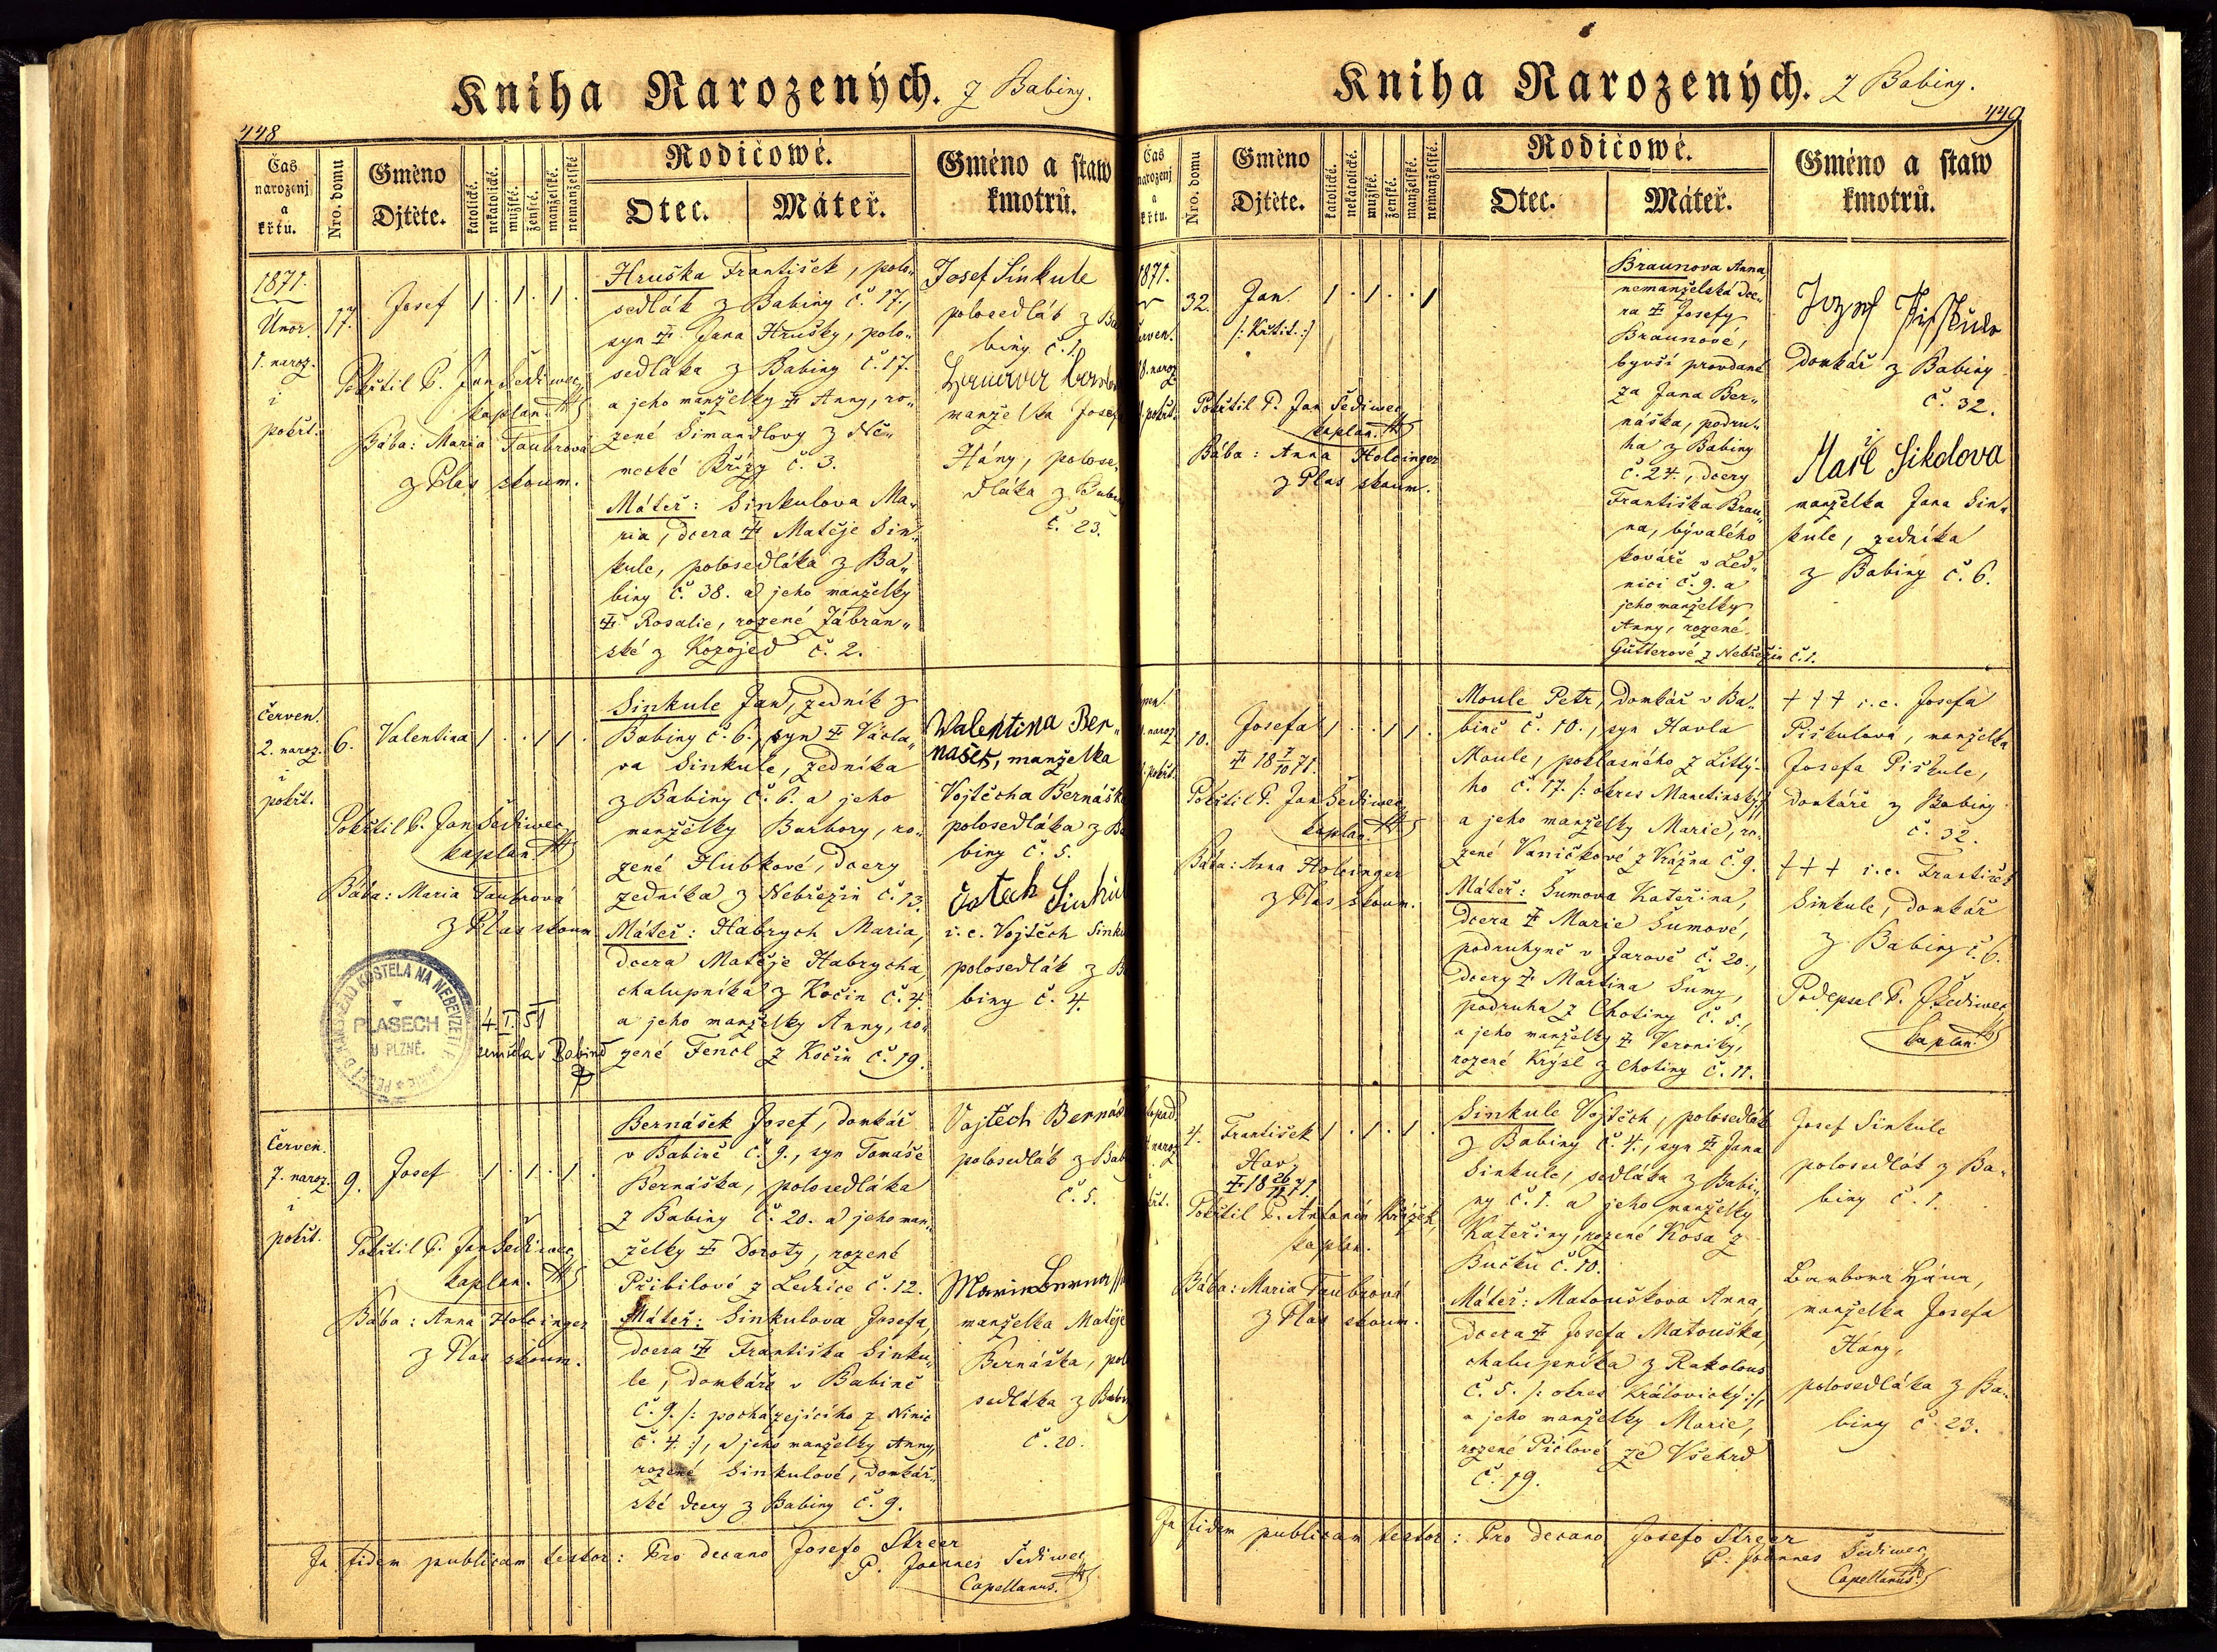 Kniha Narozených. z Babiny.
448
Čas
narozenj
a
křtu.
Nro. domu
Gméno
Djtěte.
katolické.
nekatolické.
mužské.
ženské.
manželské.
nemanželské
Rodičowé.
Otec.
Máteř.
Gméno a staw
kmotrů.
1871.
Únor.
1. naroz.
i
pokřt.
17.
Josef 1 . 1 . 1 .
Pokřtil P. Jan Šediwec,
kaplan.
Bába: Maria Taubrová
z Plas zkoum.
Hruška František, polo„
sedlák z Babiny č. 17.,
syn Jana Hrušky, polo„
sedláka z Babiny č. 17.
a jeho manželky Anny, ro„
zené Šimandlovy z Ně„
mecké Břízy č. 3.
Máteř: Sinkulova Ma„
ria, dcera Matěje Sin„
kule, polosedláka z Ba„
biny č. 38. a jeho manželky
Rosalie, rozené Zábran„
ské z Kozojed č. 2.
Josef Sinkule
polosedlák z Ba
biny č. 1.
manželka Josefa
Hány, polose„
dláka z Babi
č. 23.
Červen.
2. naroz.
i
pokřt.
6.
Valentina 1 . . 1 1 .
Pokřtil P. Jan Šediwec,
kaplan
Bába: Maria Taubrová
z Plas zkoum
PLASECH
U PLZNĚ.
4. I. 51
zemřela v Babině
Sinkule Jan, zedník z
Babiny č. 6., syn Václa„
va Sinkule, zedníka
z Babiny č. 6. a jeho
manželky Barbory, ro„
zené Hubkové, dcery
zedníka z Nebřezin č. 13.
Máteř: Habrych Maria,
dcera Matěje Habrycha,
chalupníka z Kočin č. 4.
a jeho manželky Anny, ro„
zené Fencl z Kočin č. 19.
Walentina Ber„
našek, manželka
Vojtěcha Bernášk
polosedláka z Ba
biny č. 5.
i. e. Vojtěch Sinku
polosedlák z B
biny č. 4.
Červen.
7. naroz.
i
pokřt.
9.
Josef 1 . 1 . 1 .
Pokřtil P. Jan Šediwec,
kaplan.
Bába: Anna Holcinger
z Plas zkoum.
Bernášek Josef, domkář
v Babině č. 9., syn Tomáše
Bernáška, polosedláka
z Babiny č. 20. a jeho man„
želky Doroty, rozené
Přibilové z Lednice č. 12.
Máteř: Sinkulova Josefa,
dcera Františka Sinku„
le, domkáře v Babině
č. 9. /: pocházejícího z Ninic
č. 4. :/, a jeho manželky Anny,
rozené Sinkulové, domkář„
ské dcery z Babiny č. 9.
Vojtěch Bernáš
polosedlák z Bab
č. 5.
manželka Matěje
Bernáška, pol
sedláka z Babin
č. 20.
In fidem publicam testor: Pro decano Josefo Streer
P. Joannes Šediwec,
Capellanus.
Kniha Narozených. z Babiny.
449
Čas
narozenj
a
křtu.
Nro. domu
Gméno
Djtěte.
katolické.
nekatolické.
mužské.
ženské.
manželské.
nemanželské.
Rodičowé.
Otec.
Máteř.
Gméno a staw
kmotrů.
1871.
erven.
naroz
pokřt.
32.
Jan. 1 . 1 . . 1
Pokřtil P. Jan Šediwec,
kaplan.
Bába: Anna Holcinger
z Plas zkoum.
Braunova Anna,
nemanželská dce„
ra Josefy
Braunové,
byvší provdané
za Jana Ber„
náška, podru„
ha z Babiny
č. 24., dcery
Františka Brau„
na, bývalého
kováře v Led„
nici č. 9. a
jeho manželky
Anny, rozené
Gütterové z Nebřezin č. 1.
domkář z Babiny
č. 32.
manželka Jana Sin„
kule, zedníka
z Babiny č. 6.
naroz
pokřt.
10.
Josefa 1 . . 1 1 .
18 7/10 71.
Pokřtil P. Jan Šediwec,
kaplan.
Bába: Anna Holcinger
z Plas zkoum.
Moule Petr, domkář v Ba„
bině č. 10., syn Havla
Moule, poklasného z Lítý„
ho č. 17. /: okres Manetinský :/
a jeho manželky Marie, ro„
zené Vaničkové z Vrážna č. 9.
Máteř: Šumova Kateřina,
dcera Marie Šumové,
podruhyně v Jarově č. 20.,
dcery Martina Šumy,
podruha z Chotiny č. 5.,
a jeho manželky Veroniky,
rozené Krýsl z Chotiny č. 11.
+ + + i. e. Josefa
Piškulová, manželka
Josefa Piškule,
domkáře z Babiny
č. 32.
+ + + i. e. František
Sinkule, domkář
z Babiny č. 6.
Podepsal P. J. Šediwec,
kaplan.
topad.
naroz
křt.
4.
František 1 . 1 . 1 .
18 26/11 71.
Pokřtil P. Antonín Křížek,
kaplan.
Bába: Maria Taubrová
z Plas zkoum.
Sinkule Vojtěch, polosedlák
z Babiny č. 4., syn Jana
Sinkule, sedláka z Babi„
ny č. 1. a jeho manželky
Kateřiny, rozené Kosa z
Bučku č. 10.
Máteř: Matouškova Anna,
dcera Josefa Matouška,
chalupníka z Rakolous
č. 5. /: okres Královický :/,
a jeho manželky Marie,
rozené Píclové ze Všehrd
č. 19.
Josef Sinkule
polosedlák z Ba„
biny č. 1.
Barbora Hána,
manželka Josefa
Hány,
polosedláka z Ba„
biny č. 23.
In fidem publicam testor: Pro decano Josefo Streer
P. Joannes Šediwec,
Capellanus.